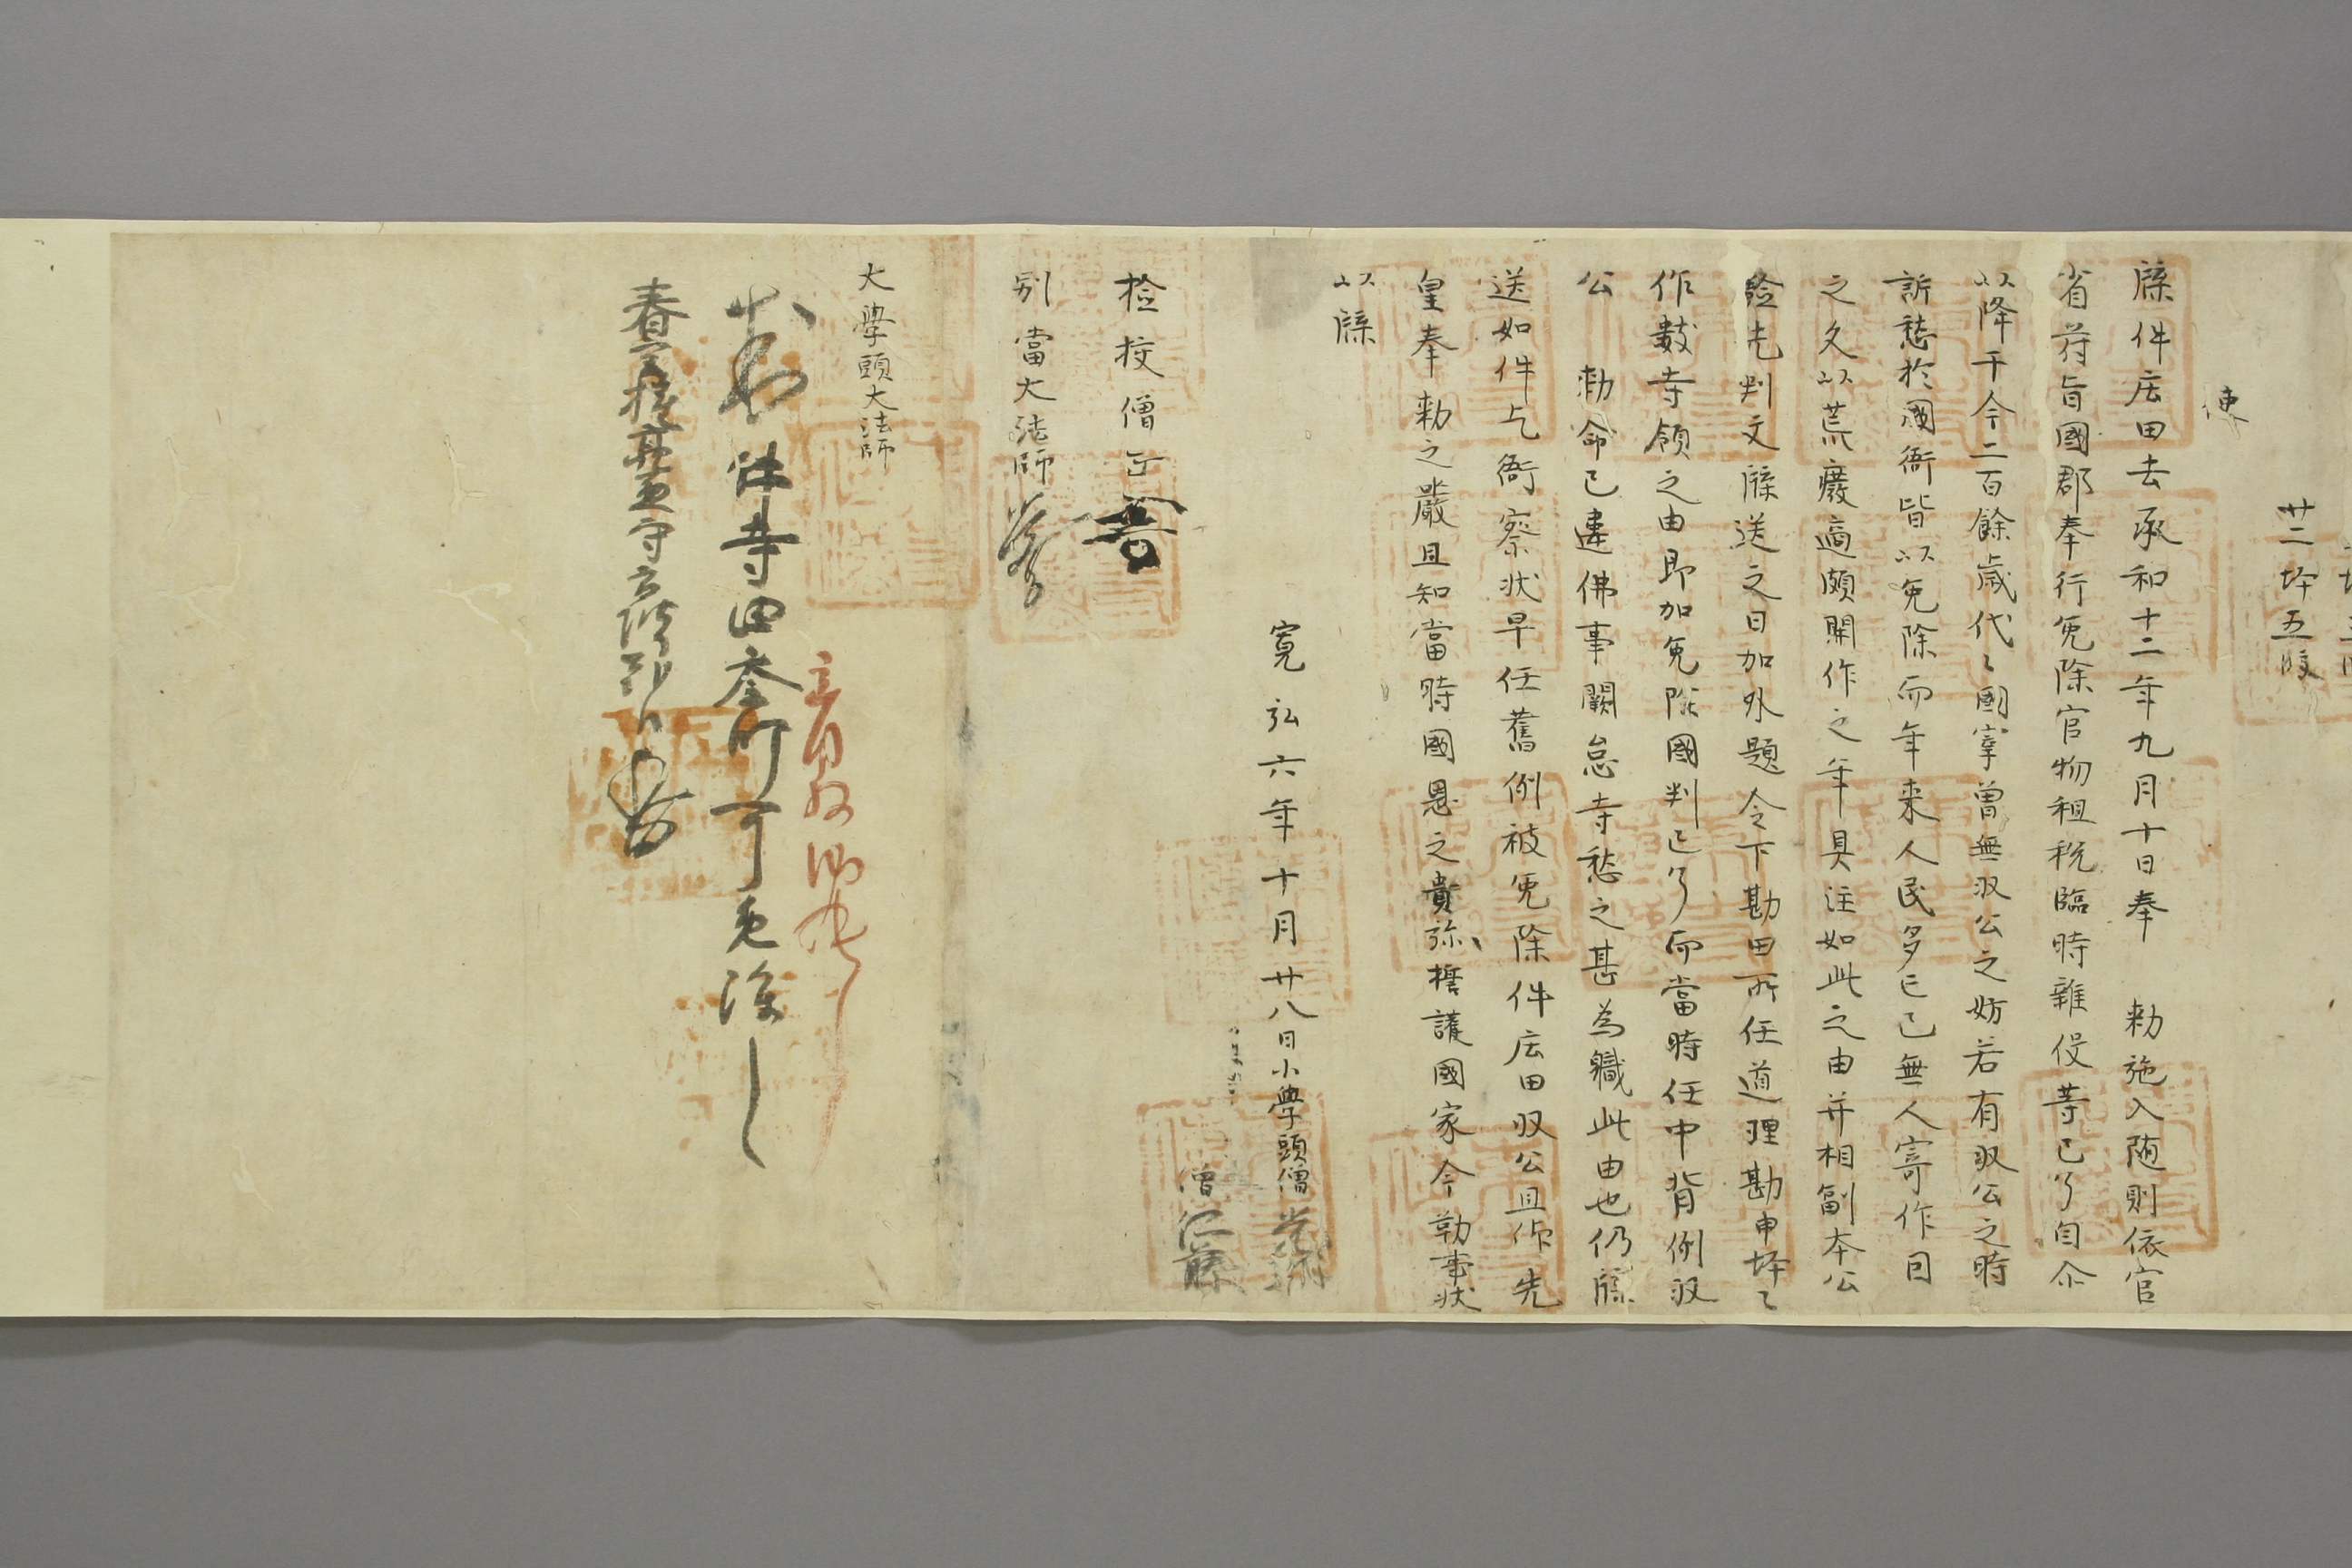 廿二坪五段
使
牒件庄田去承和十二年九月十日奉　勅施入随則依官
省符旨國郡奉行免除官物租税臨時雜役等已了自尒
以降于今二百餘歳代々國宰曾無収公之妨若有収公之時
訴愁於國衙皆以免除而年来人民多亡已無人寄作因
之久以荒癈適頗開作之年具注如此之由并相副本公
驗先判文牒送之日加外題令下勘田所任道理勘申坪々
作數寺領之由即加免除國判已了而當時任中背例収
公　勅命已違佛事闕怠寺愁之甚為軄此由也仍牒
送如件乞衙察状早任舊例被免除件庄田収公且仰先
皇奉勅之嚴且知當時國恩之貴弥擁護國家今勒事状
以牒
寛弘六年十月廿八日小學頭僧
僧仁
撿挍僧正
別當大法師
大學頭大法師
件寺田 町可免除
春宮權亮兼守